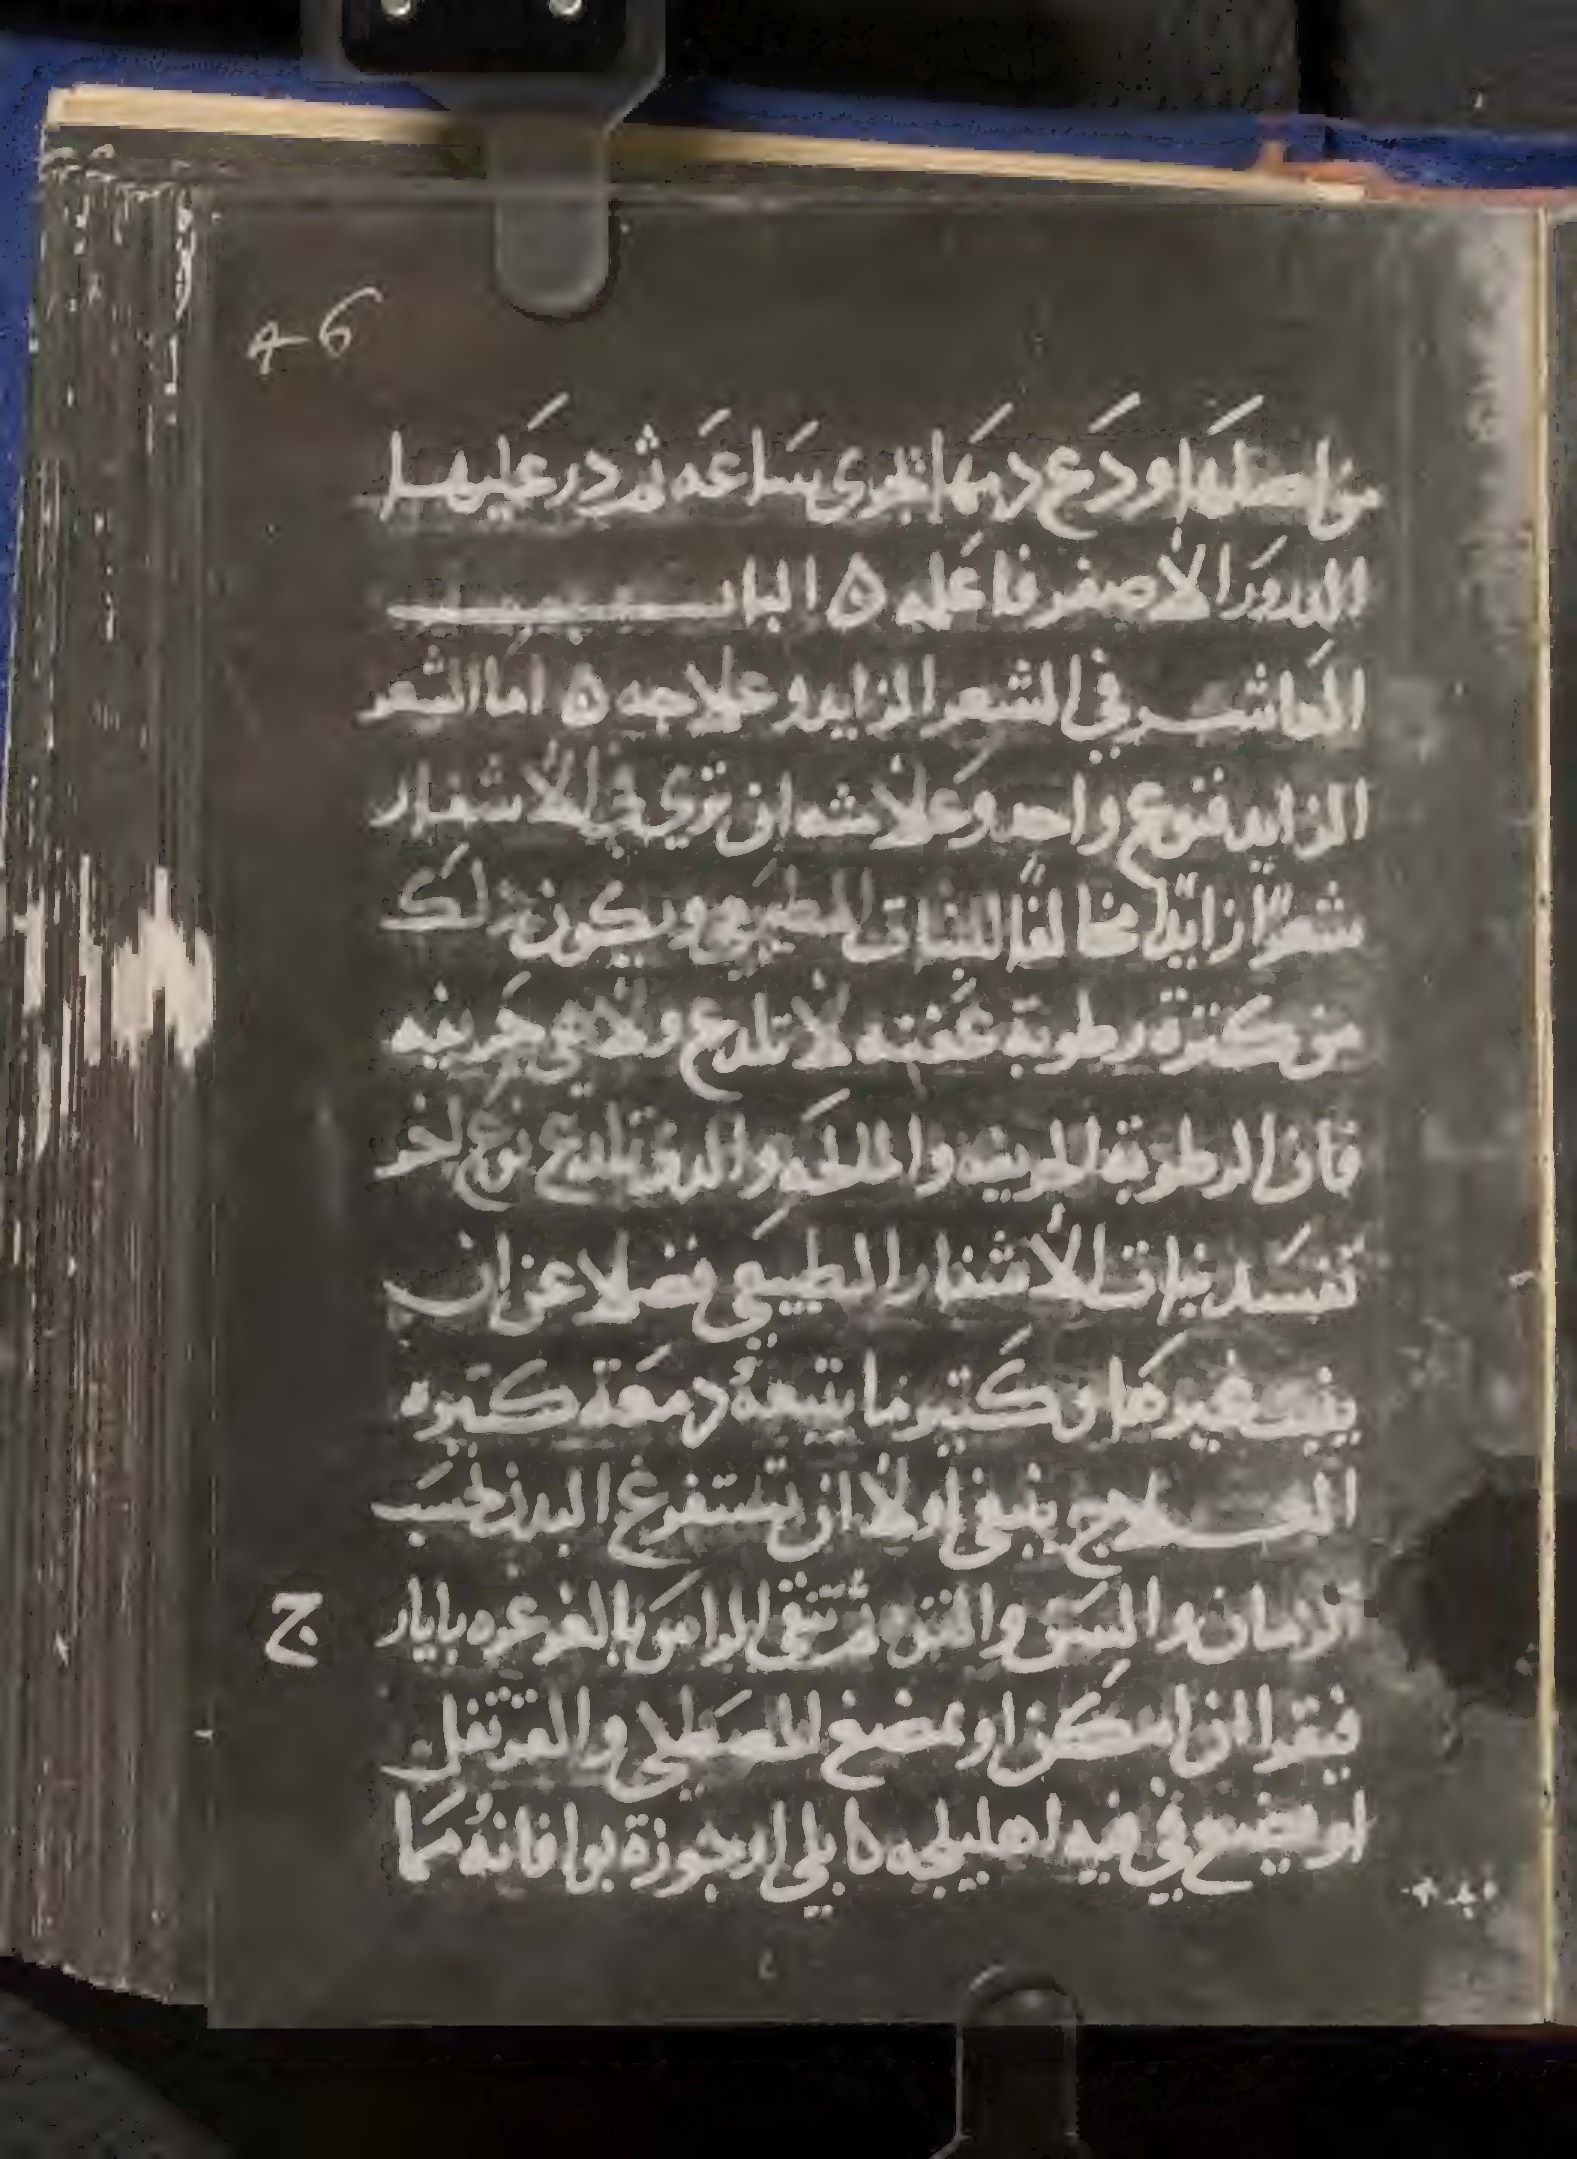 46
من اصلها ودع دمها يجرى ساعه ثم در عليها
الدرور الأصفر فاعلم ه الباب
العاشر في الشعر الزايد وعلاجه ه اما الشعر
الزايد فنوع واحد وعلامته ان تري في الأشفار
شعرًا زايدًا مخالفًا للنبات الطبيعي ويكون ذلك
من كثرة رطوبة عفنه لا تلدع ولا هي حريفه
فان الرطوبة الحريفه والمالحه والذى تلدع نوع اخر
تفسد نبات الأشفار الطبيعي فضلا عن ان
ينبت غيرها وكثير ما يتبعهُ دمعة كثيره
العلاج ينبغي اولا ان تستفرغ البدن بحسب
الزمان والسن والقوه ثم تنقي الراس بالغرغره بايار
ج
فيقرا ان امكن او يمضغ المصطكى والقرنفل
او يضع في فيه اهليلجه كابلي او جوزة بوا فانهُ مما